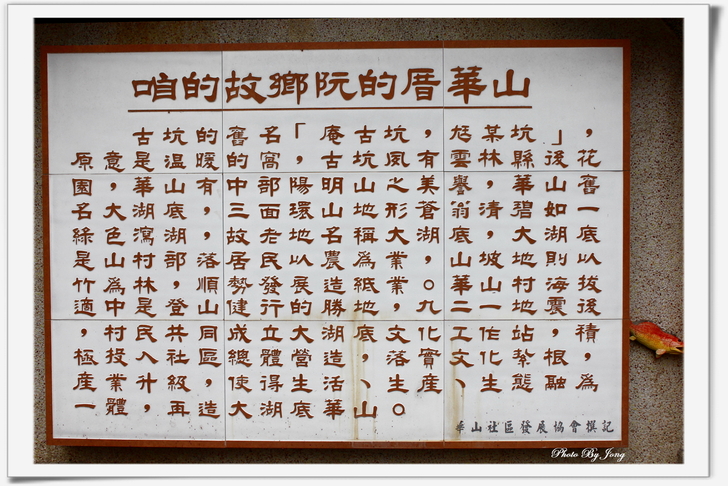 咱的故鄉阮的厝華山
古坑的舊名「庵古坑,尨某坑」,
原意是溫暖的窩,古坑風有雲林縣後花
園,華山有中部陽明山之美譽,華山舊
名大湖底,三面環山地形蒼翁清碧如一
綠色瀉湖,故老地名稱大湖底,坡地湖底
是山村部落居民以農為業,山山地則以
竹為林,順勢發展造紙業。華一村海拔
適中是登山健行的勝地,九二一地震後
,村民共同成立大湖底文化工作站,積
極投入社區總體營造,落實文化紮根,
產業升級,使得生活、生產、生態融為
一體,再造大湖底華山。
華山社區發展協會撰記
Photo By Jong